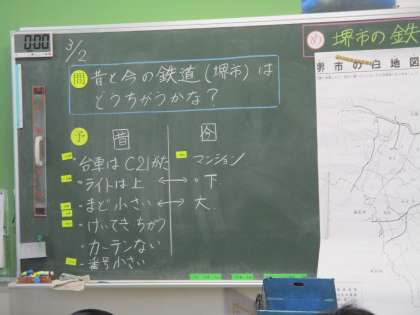 0:00
3/2
め 堺市の鉄
堺市の白地図
問 昔と今の鉄道(堺市)は
どうちがうかな?
予 昔 今
・台車はC21がた マンション
・ライトは上 ←→ ・下
・まど小さい ←→ 大
・けいてきちがう
カーテンない
・番号小さい